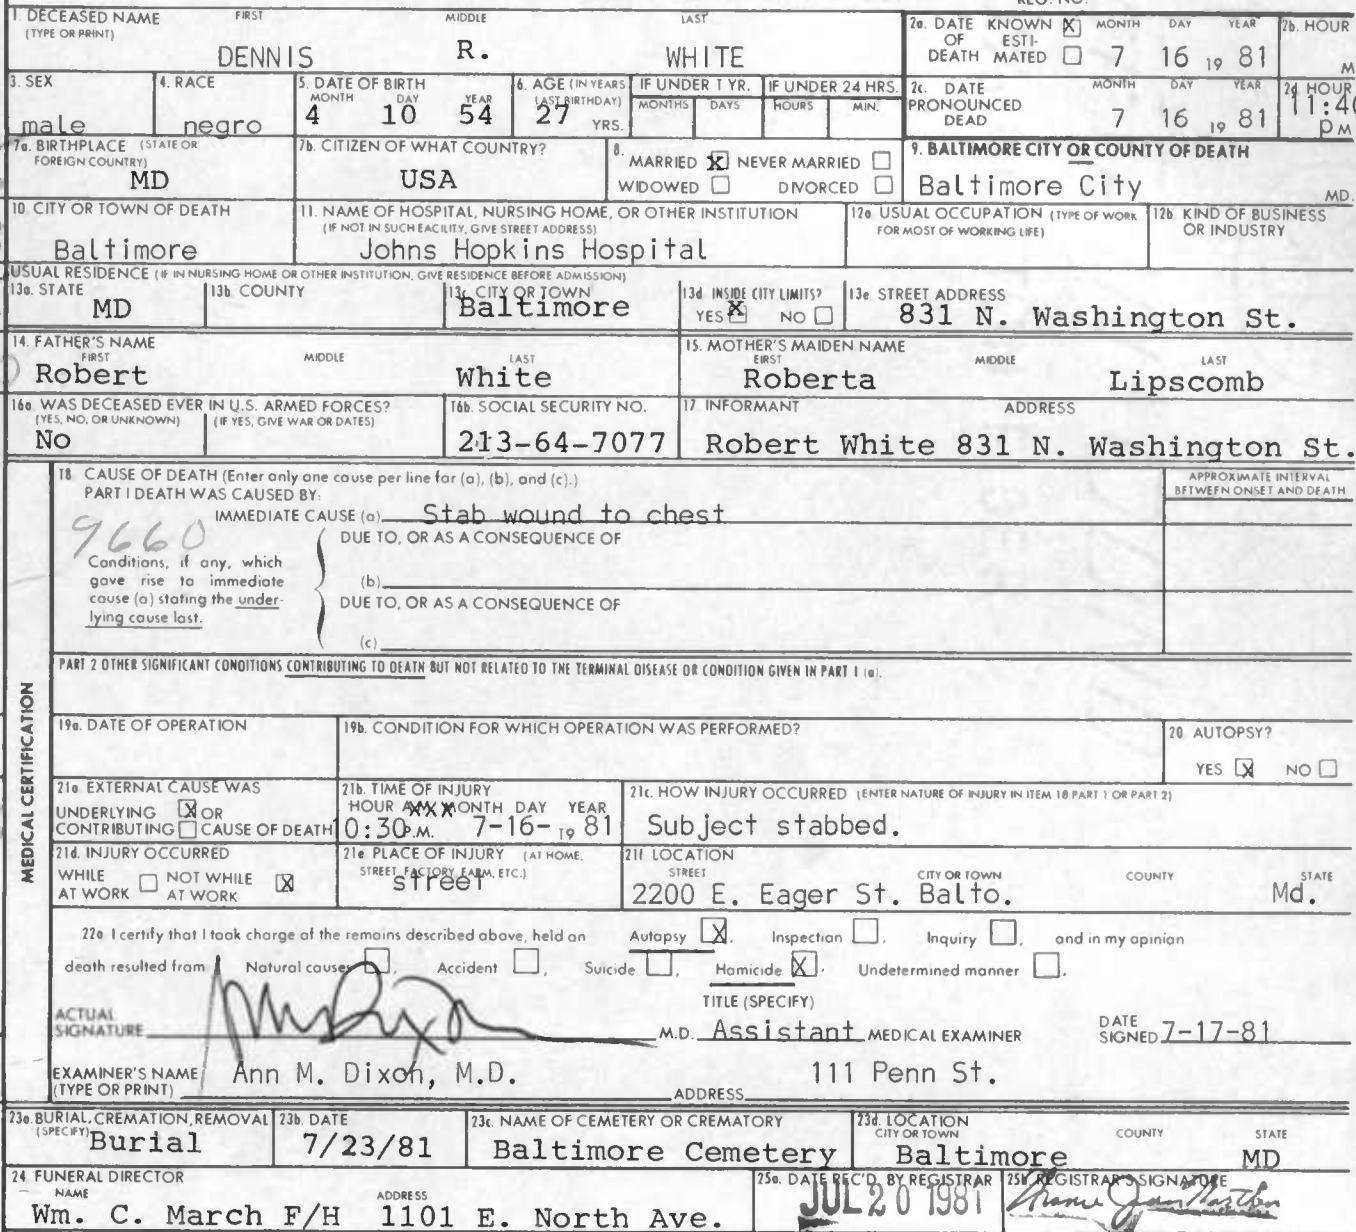 REG. NO.
1. DECEASED NAME FIRST MIDDLE LAST
(TYPE OR PRINT)
DENNIS R. WHITE
2a. DATE KNOWN X MONTH DAY YEAR 2b. HOUR
OF ESTI-
DEATH MATED 7 16 19 81 M
3. SEX male
4. RACE negro
5. DATE OF BIRTH
MONTH DAY YEAR
4 10 54
6. AGE (IN YEARS
LAST BIRTHDAY)
27 YRS.
IF UNDER 1 YR. IF UNDER 24 HRS.
MONTHS DAYS HOURS MIN.
2c. DATE MONTH DAY YEAR 2d HOUR
PRONOUNCED
DEAD 7 16 19 81 11:40
P M
7a. BIRTHPLACE (STATE OR
FOREIGN COUNTRY)
MD
7b. CITIZEN OF WHAT COUNTRY?
USA
8.
MARRIED X NEVER MARRIED
WIDOWED DIVORCED
9. BALTIMORE CITY OR COUNTY OF DEATH
Baltimore City MD.
10. CITY OR TOWN OF DEATH
Baltimore
11. NAME OF HOSPITAL, NURSING HOME, OR OTHER INSTITUTION
(IF NOT IN SUCH FACILITY, GIVE STREET ADDRESS)
Johns Hopkins Hospital
12a USUAL OCCUPATION (TYPE OF WORK
FOR MOST OF WORKING LIFE)
12b. KIND OF BUSINESS
OR INDUSTRY
USUAL RESIDENCE (IF IN NURSING HOME OR OTHER INSTITUTION, GIVE RESIDENCE BEFORE ADMISSION)
13a. STATE
MD
13b. COUNTY
13c. CITY OR TOWN
Baltimore
13d INSIDE CITY LIMITS?
YES X NO
13e. STREET ADDRESS
831 N. Washington St.
14. FATHER'S NAME
FIRST MIDDLE LAST
Robert White
15. MOTHER'S MAIDEN NAME
FIRST MIDDLE LAST
Roberta Lipscomb
16a WAS DECEASED EVER IN U.S. ARMED FORCES?
(YES, NO, OR UNKNOWN) (IF YES, GIVE WAR OR DATES)
No
16b. SOCIAL SECURITY NO.
213-64-7077
17 INFORMANT ADDRESS
Robert White 831 N. Washington St.
MEDICAL CERTIFICATION
18 CAUSE OF DEATH (Enter only one cause per line for (a), (b), and (c).)
PART I DEATH WAS CAUSED BY:
APPROXIMATE INTERVAL
BETWEEN ONSET AND DEATH
IMMEDIATE CAUSE (a) Stab wound to chest
9660
DUE TO, OR AS A CONSEQUENCE OF
Conditions, if any, which
gave rise to immediate
cause (a) stating the under-
lying cause last.
(b)
DUE TO, OR AS A CONSEQUENCE OF
(c)
PART 2 OTHER SIGNIFICANT CONDITIONS CONTRIBUTING TO DEATH BUT NOT RELATED TO THE TERMINAL DISEASE OR CONDITION GIVEN IN PART I (a).
19a. DATE OF OPERATION
19b. CONDITION FOR WHICH OPERATION WAS PERFORMED?
20. AUTOPSY?
YES X NO
21a. EXTERNAL CAUSE WAS
UNDERLYING X OR
CONTRIBUTING CAUSE OF DEATH
21b. TIME OF INJURY
HOUR MONTH DAY YEAR
0:30 P.M. 7-16- 19 81
21c. HOW INJURY OCCURRED (ENTER NATURE OF INJURY IN ITEM 18 PART 1 OR PART 2)
Subject stabbed.
21d. INJURY OCCURRED
WHILE NOT WHILE X
AT WORK AT WORK
21e PLACE OF INJURY (AT HOME,
STREET, FACTORY, FARM, ETC.)
street
21f LOCATION
STREET CITY OR TOWN COUNTY STATE
2200 E. Eager St. Balto. Md.
22a I certify that I took charge of the remains described above, held an Autopsy X, Inspection , Inquiry , and in my opinion
death resulted from Natural causes , Accident , Suicide , Homicide X, Undetermined manner .
ACTUAL
SIGNATURE
TITLE (SPECIFY)
M.D. Assistant MEDICAL EXAMINER
DATE
SIGNED 7-17-81
EXAMINER'S NAME
(TYPE OR PRINT) Ann M. Dixon, M.D.
ADDRESS 111 Penn St.
23a. BURIAL, CREMATION, REMOVAL
(SPECIFY) Burial
23b. DATE
7/23/81
23c. NAME OF CEMETERY OR CREMATORY
Baltimore Cemetery
23d. LOCATION
CITY OR TOWN COUNTY STATE
Baltimore MD
24 FUNERAL DIRECTOR
NAME ADDRESS
Wm. C. March F/H 1101 E. North Ave.
25a. DATE REC'D. BY REGISTRAR
JUL 20 1981
25b. REGISTRAR'S SIGNATURE